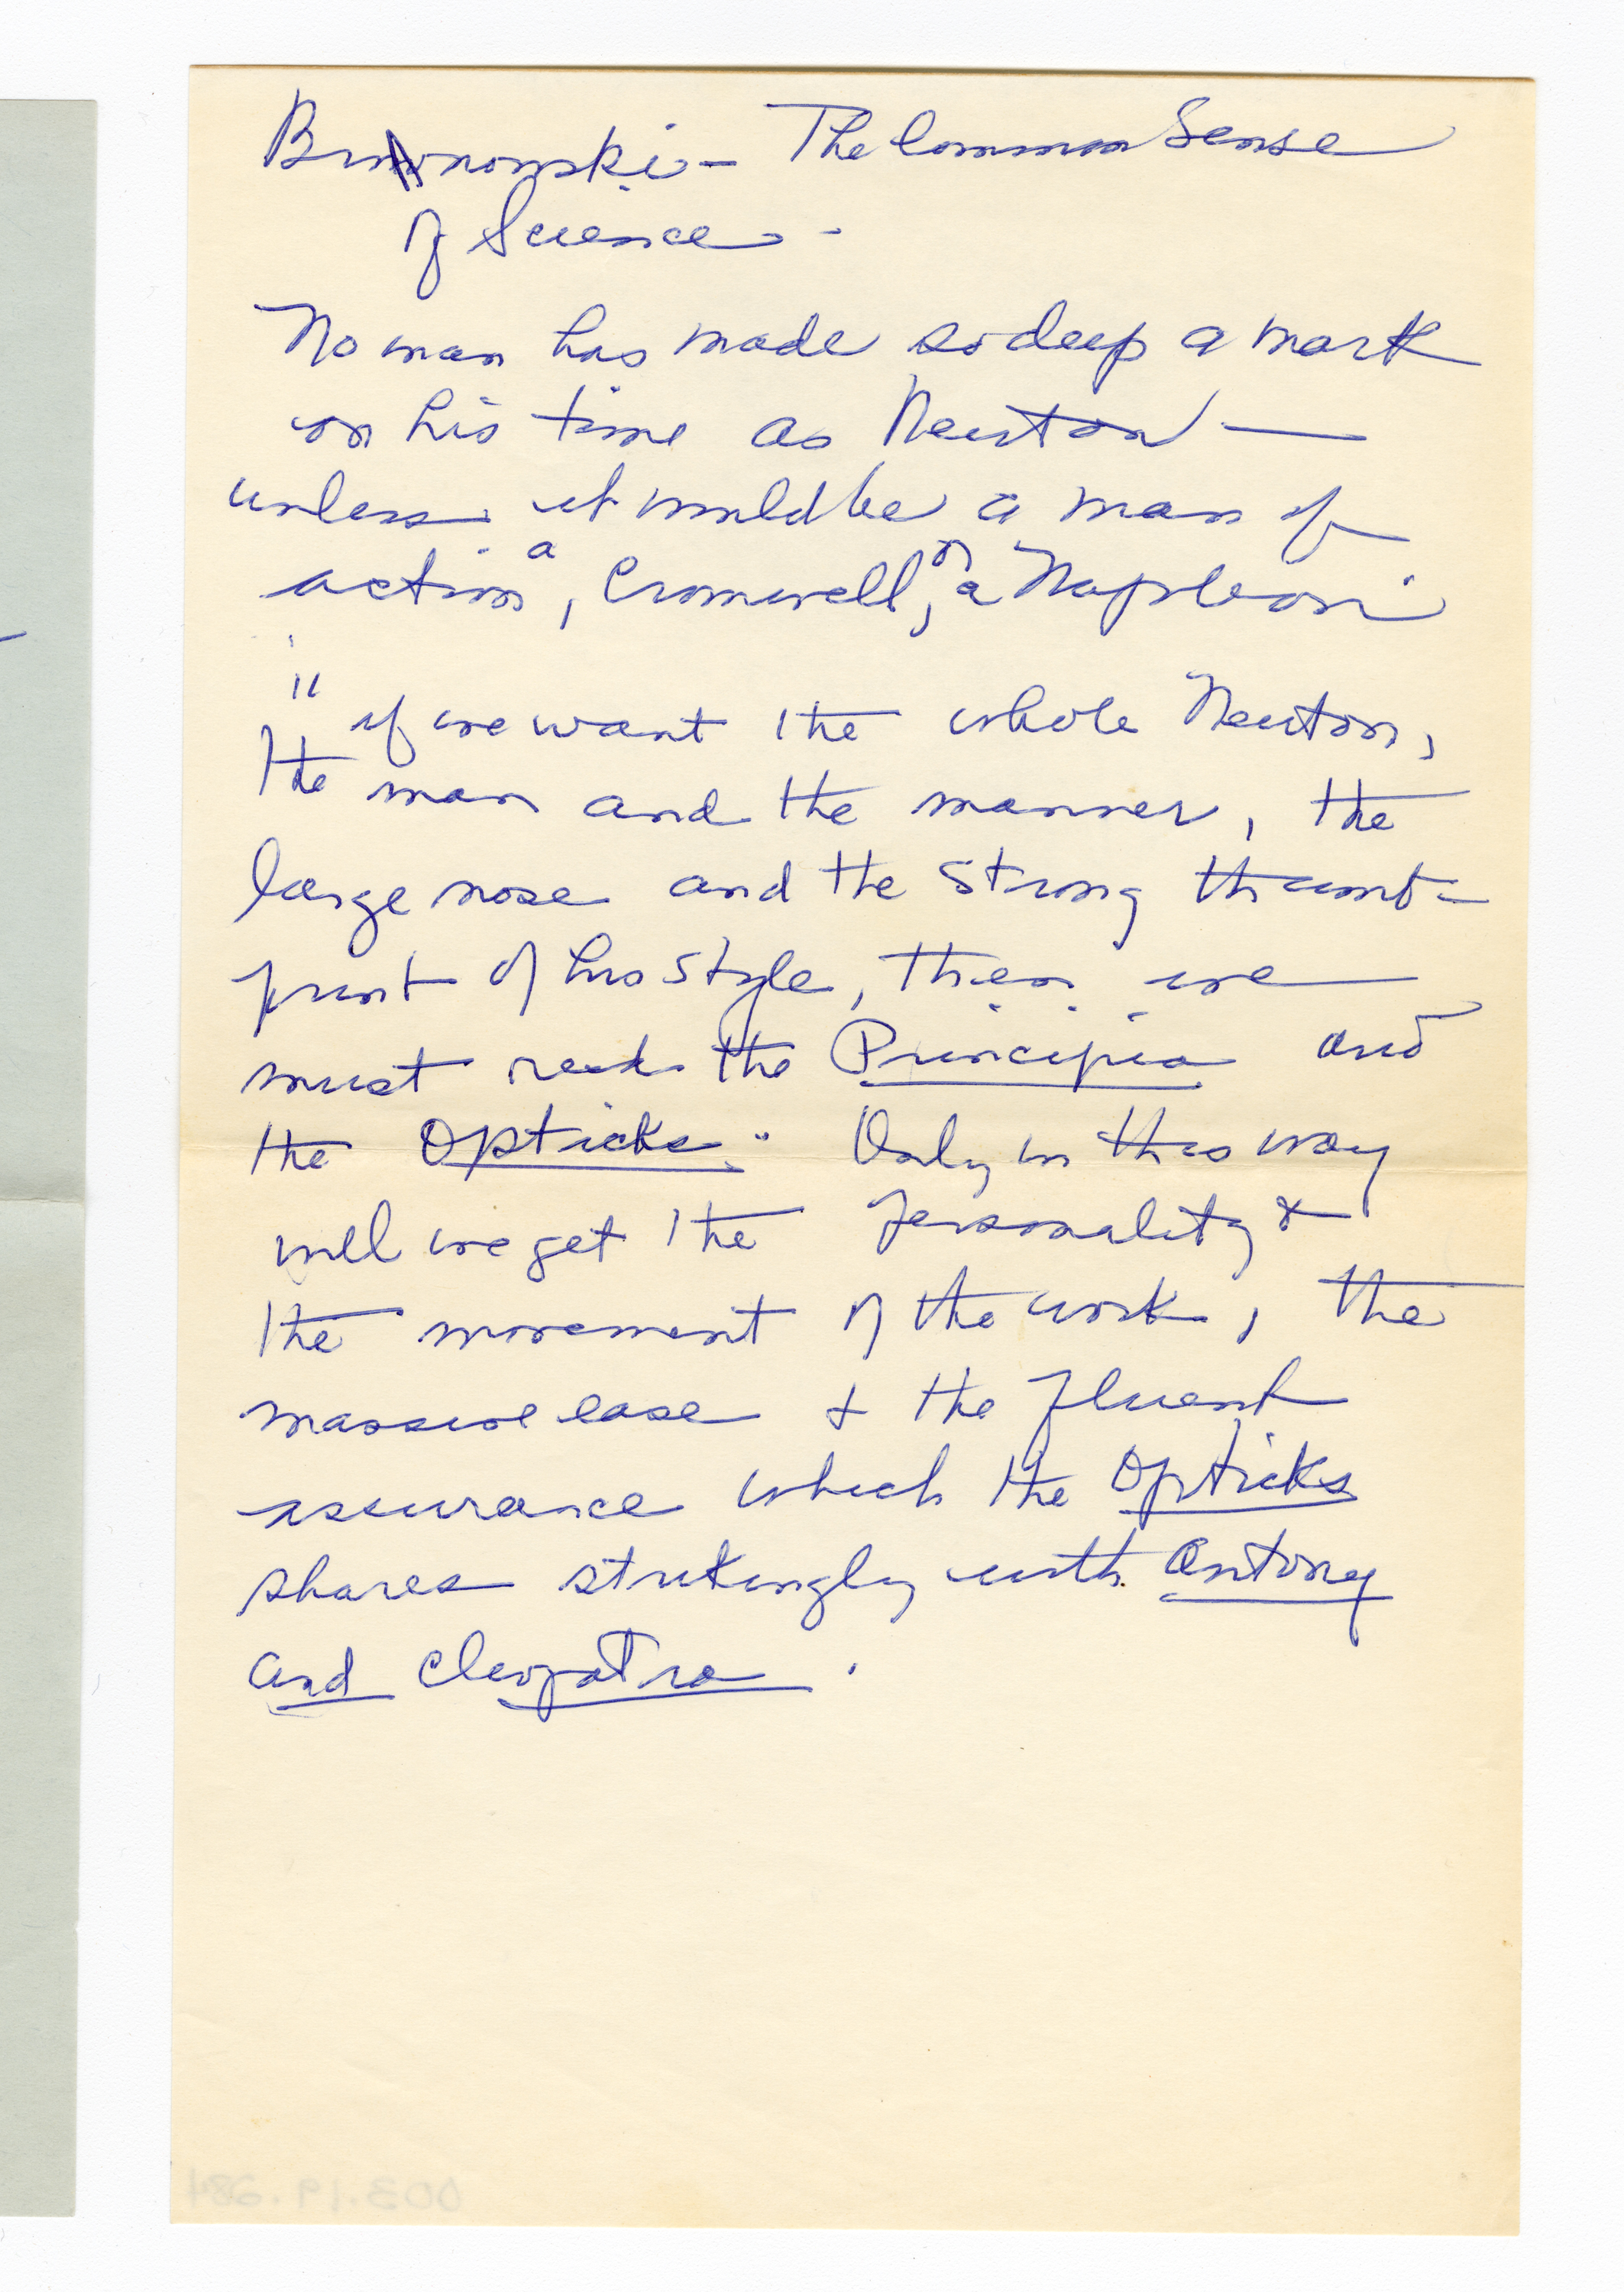 Bronowski - The Common Sense
of Science -
No man has made so deep a mark
on his time as Newton —
unless it would be a man of
action, a Cromwell, or a Napoleon
" if we want the whole Newton,
the man and the manner, the
large nose and the strong thumb-
print of his style, then we
must read the Principia and
the Opticks." Only in this way
will we get the personality &
the movement of the work, the
massive ease & the fluent
assurance which the Opticks
shares strikingly with Antony
and Cleopatra.